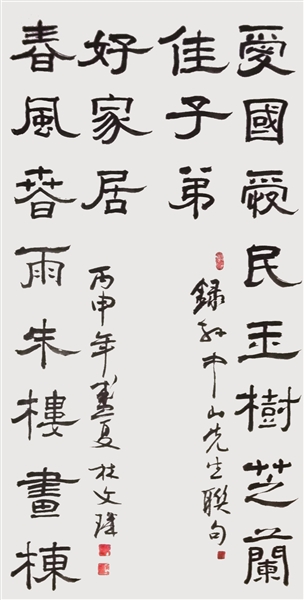 愛國愛民玉樹芝蘭
佳子弟
録孙中山先生聯句
春風春雨朱樓畫棟
好家居
丙申年盛夏杜文